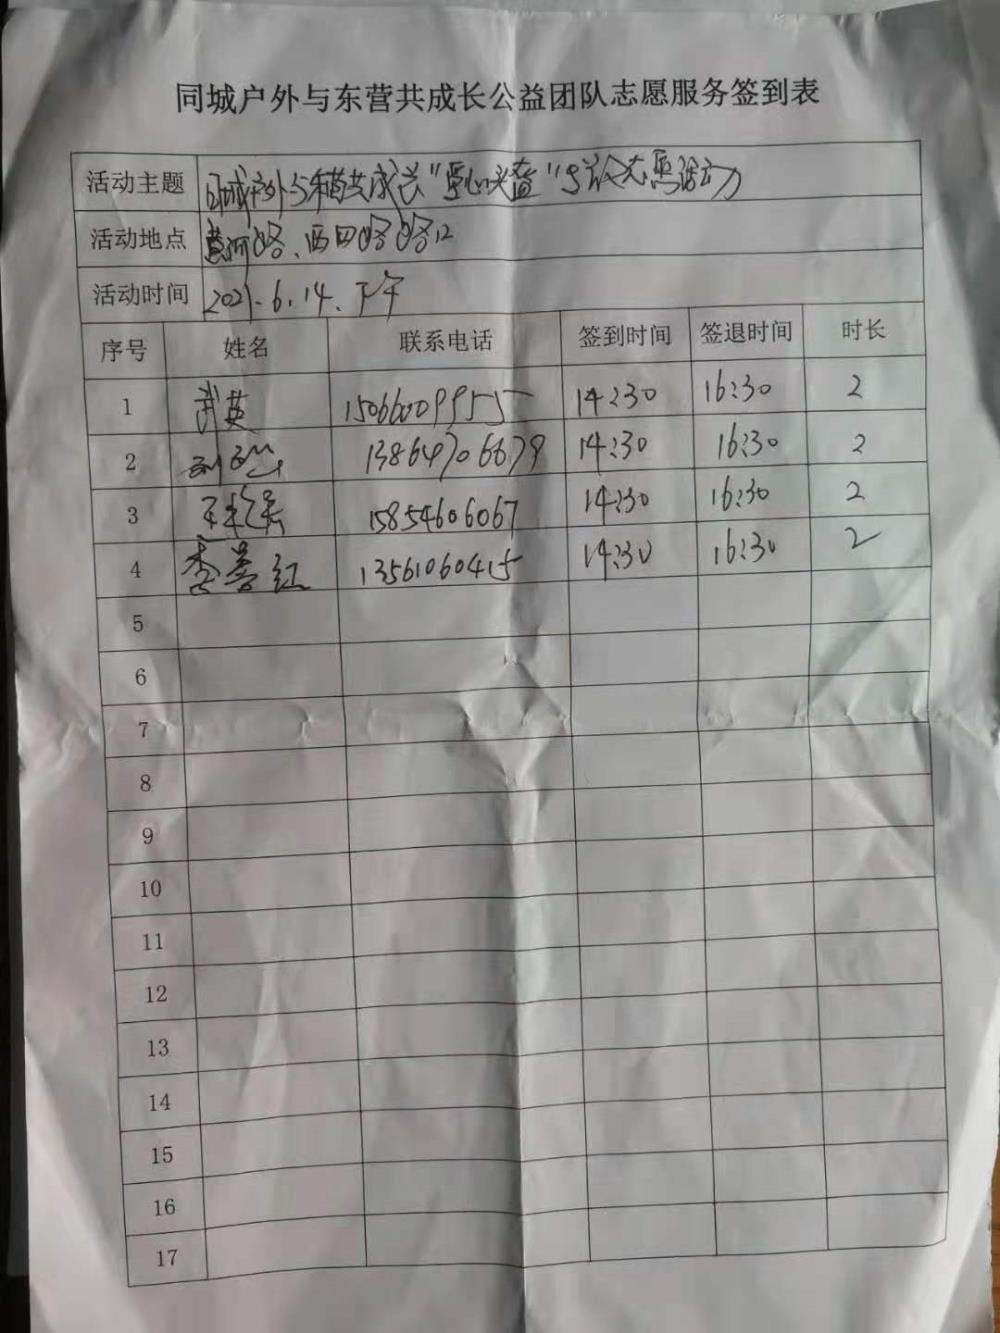 同城户外与东营共成长公益团队志愿服务签到表
活动主题 同城户外与东营共成长"爱心头盔"号公益志愿活动
活动地点 黄河路、西四路路口
活动时间 2021.6.14.下午
序号 姓名 联系电话 签到时间 签退时间 时长
1 武英 15066009955 14:30 16:30 2
2 13864706679 14:30 16:30 2
3 15854606067 14:30 16:30 2
4 李善红 13561060415 14:30 16:30 2
5
6
7
8
9
10
11
12
13
14
15
16
17